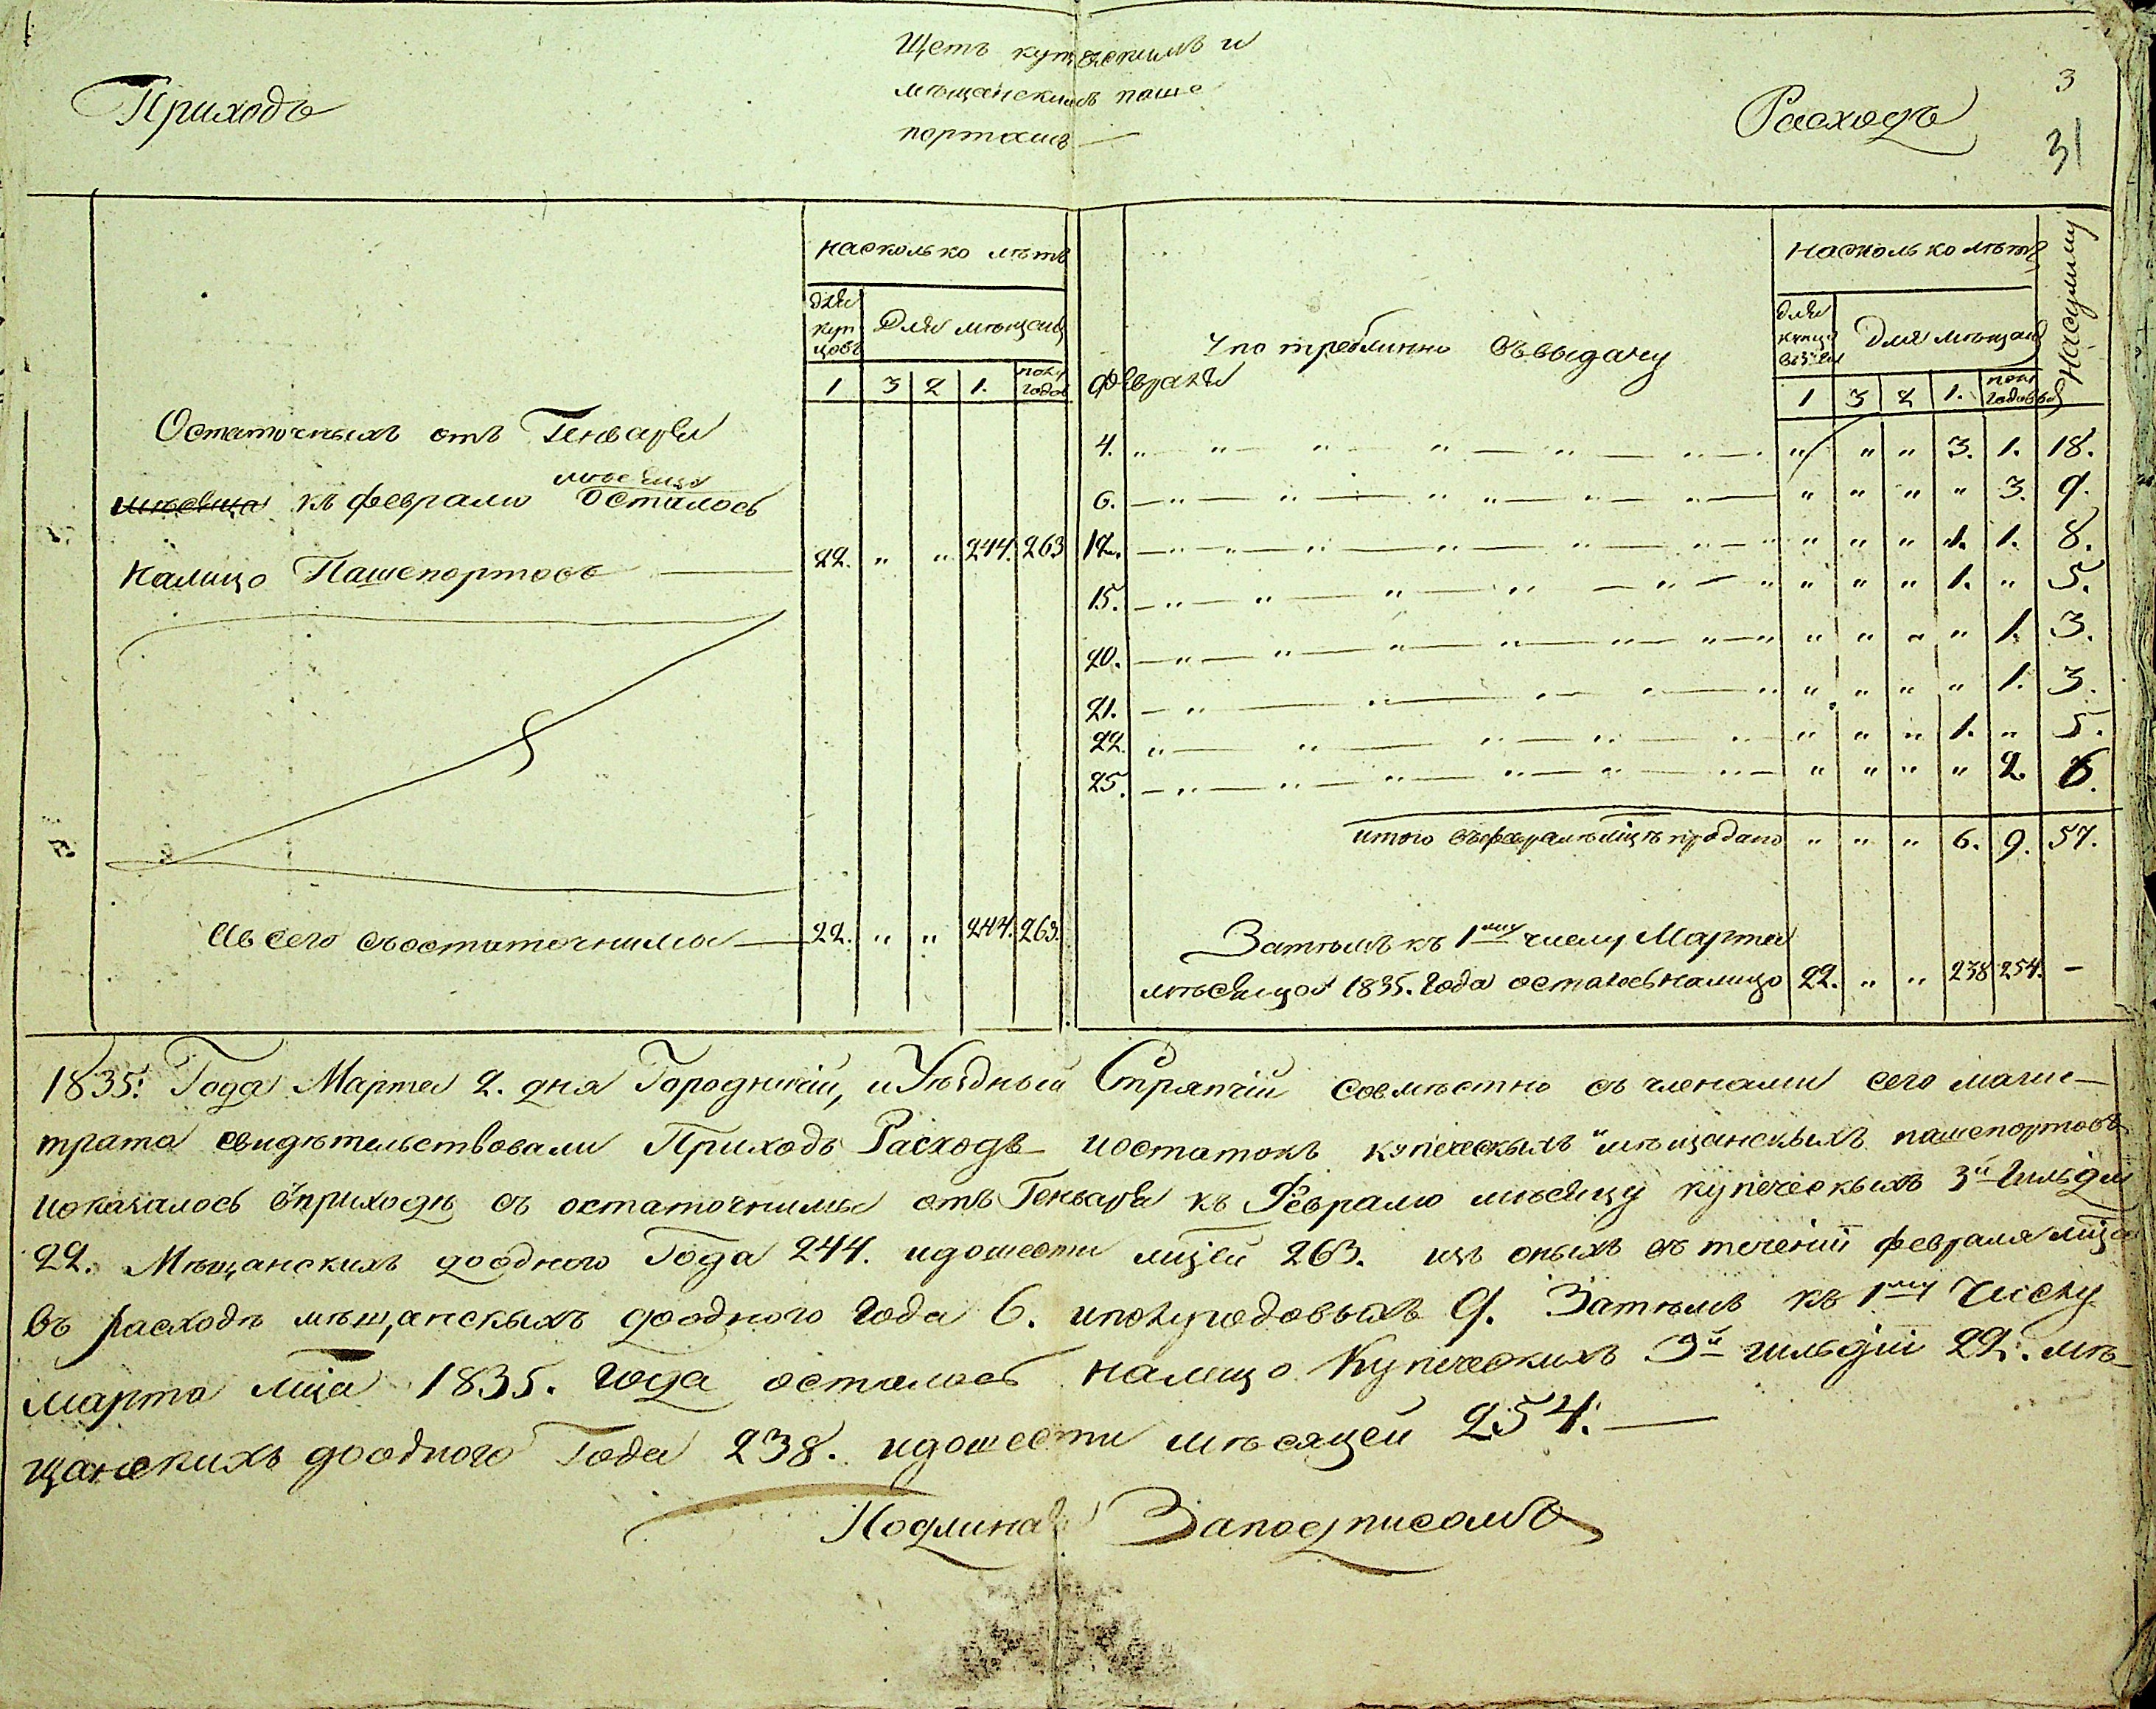 Щетъ купъческимъ и
мѣщанскимъ паше
портамъ —
Приходъ
Расходъ
3
31
насколько лѣтъ
для куп цовъ
Для мѣщанъ
1 3 2 1. полу годов
Остаточныхъ отъ Генваря
мѣсяца къ февралю мѣсяцу осталось
налицо Пашепортовъ — 22. „ „ 244. 263
Всего съостаточнимы — 22. „ „ 244. 263.
Насколько лѣтъ
На сумму
для купцовъ 3й гил
Для мѣщанъ
Употреблинно въвыдачу
Февраля
1 3 2 1. полу годовыя
4. „ „ „ 3. 1. 18.
6. „ „ „ „ 3. 9.
12. „ „ „ 1. 1. 8.
15. „ „ „ 1. „ 5.
20. „ „ „ „ 1. 3.
21. „ „ „ „ 1. 3.
22. „ „ „ 1. „ 5.
25. „ „ „ „ 2. 6.
итого въфевралѣ мцѣ продано „ „ „ 6. 9. 57.
Затѣмъ къ 1му числу Марта
мѣсяца 1835. года осталось налицо 22. „ „ 238 254. —
1835: Года Марта 2. дня Городничій, и Уѣздный Стряпчій совмѣстно съ членами сего магис—
трата свидѣтельствовали Приходъ Расходъ иостатокъ купеческыхъ и мѣщанскыхъ пашепортовъ
иоказалось вприходѣ съ остаточнимы отъ Генваря къ Февралю мѣсяцу купеческыхъ 3й Гильдіи
22. Мѣщанскихъ доодного Года 244. идошести мцей 263. изъ оныхъ въ теченіи февраля мца
въ расходѣ мѣщанскыхъ доодного года 6. иполугодовыхъ 9. Затѣмъ къ 1му числу
марта мца 1835. года осталось налицо Купеческихъ 3й гильдіи 22. мѣ—
щанскихъ доодного Года 238. идошести мѣсяцей 254. —
Подлинная Заподписомъ